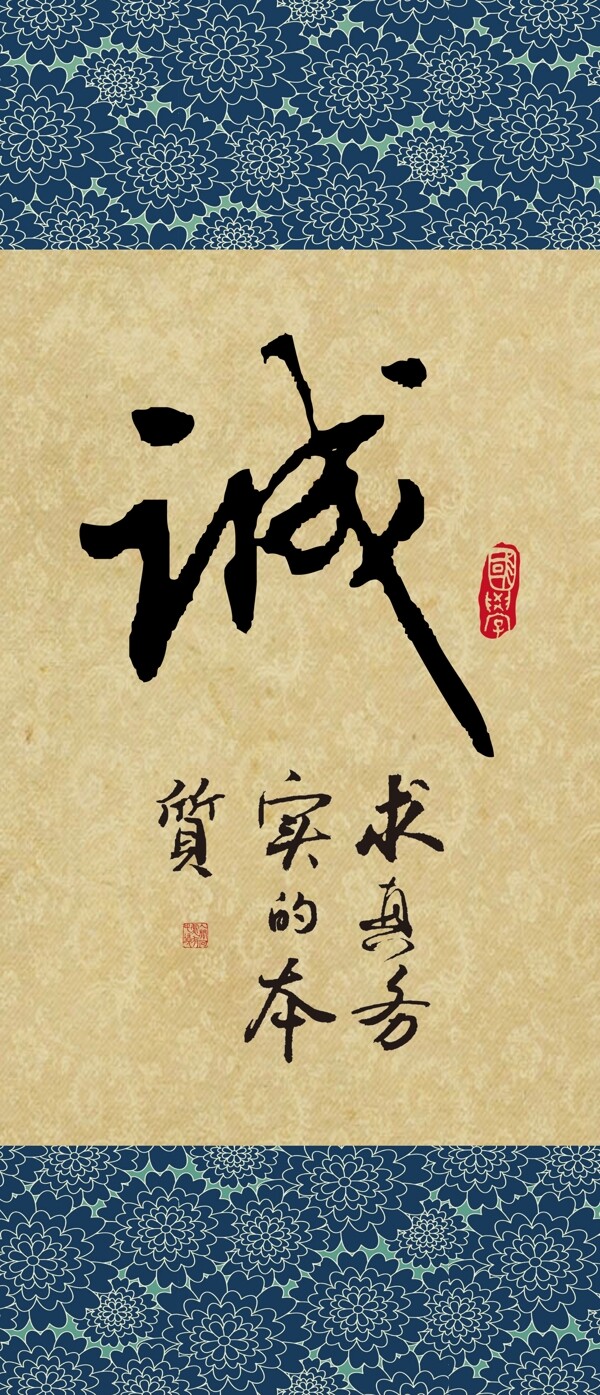 诚
國學
求真务
实的本
質